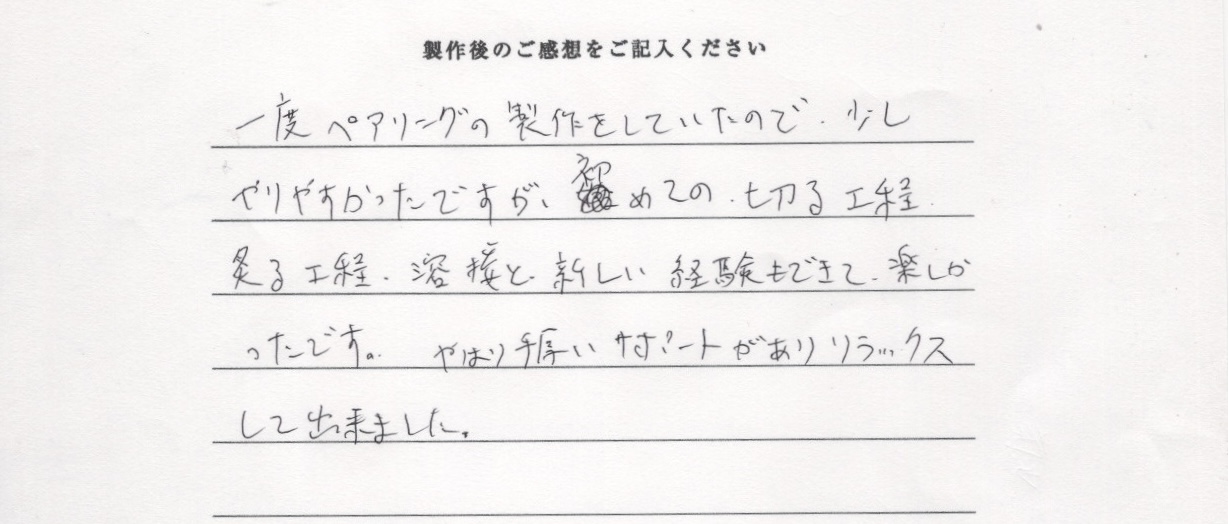 製作後のご感想をご記入ください
一度ペアリングの製作をしていたので、少し
やりやすかったですが、初めての、切る工程、
炙る工程、溶接と、新しい経験もできて、楽しか
ったです。 やはり手厚いサポートがありリラックス
して出来ました。